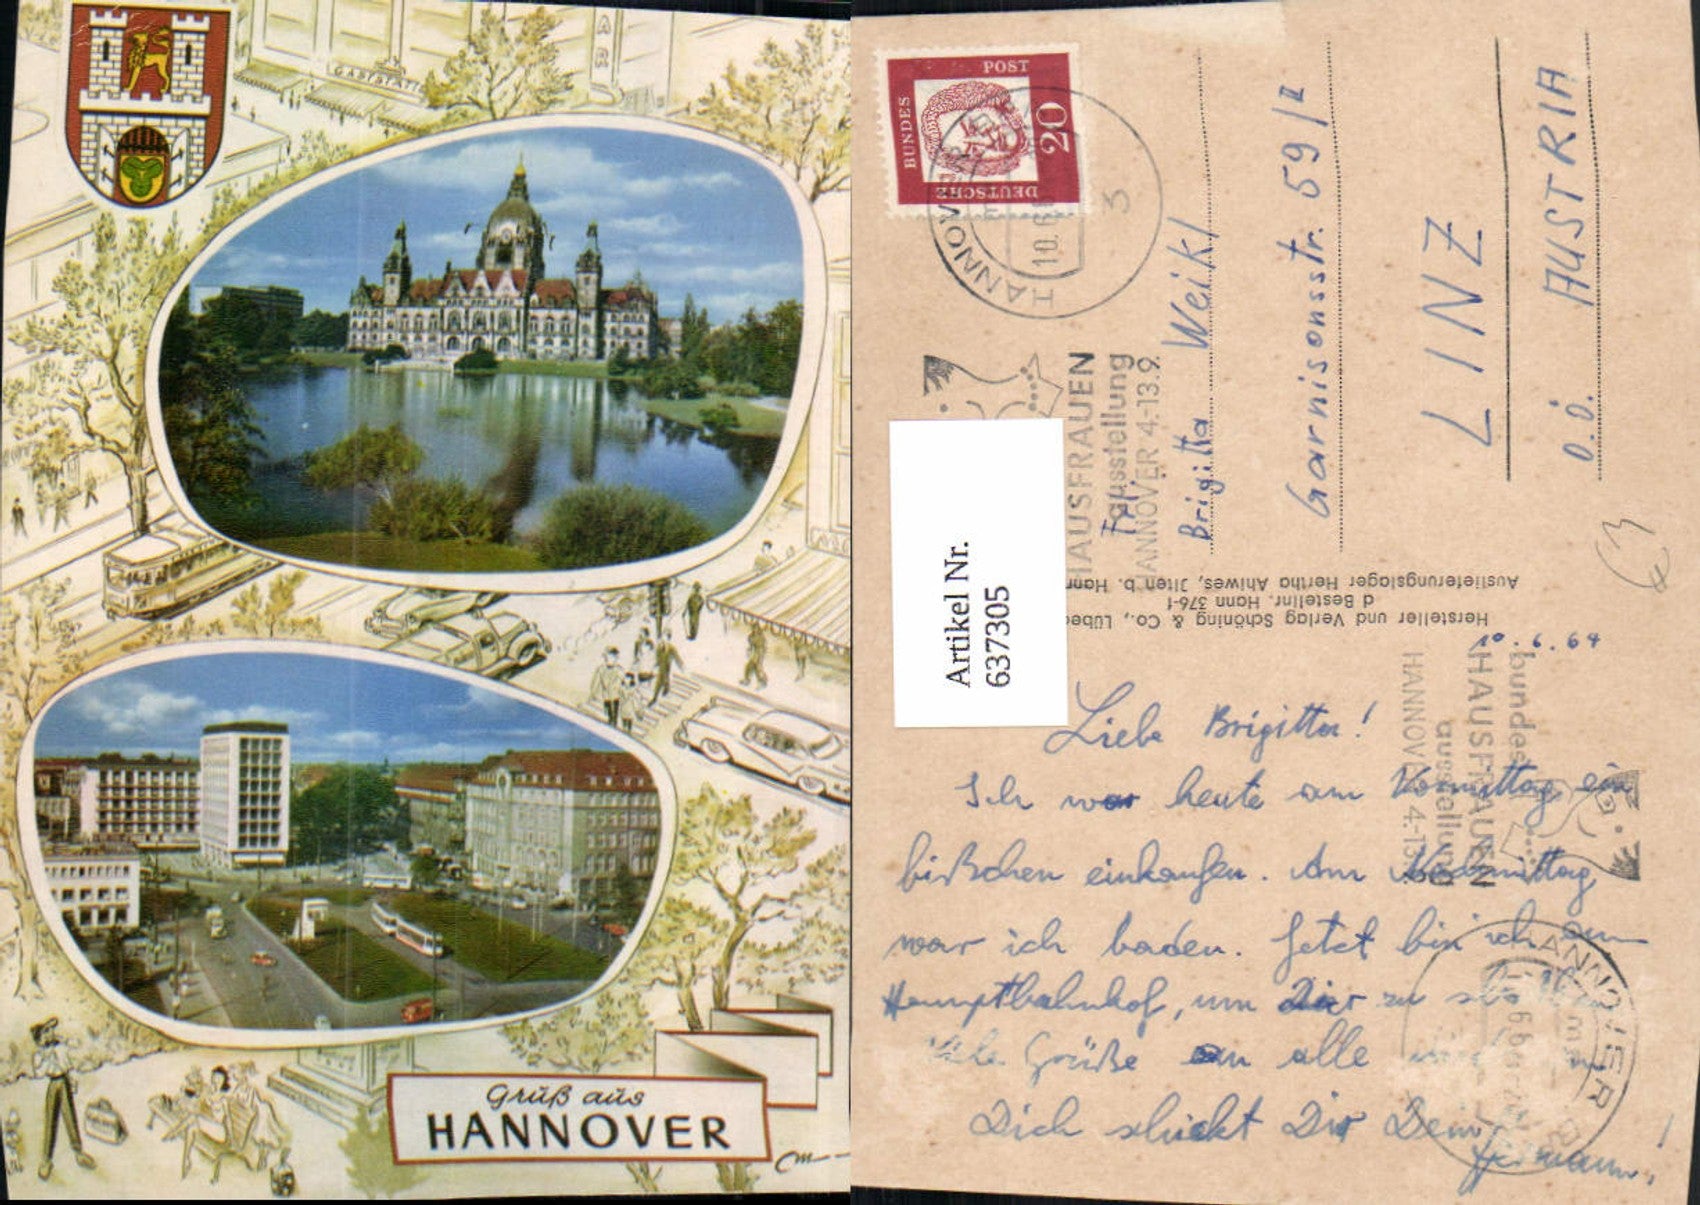 GASTSTÄTTE
BAR
Gruß aus
HANNOVER
BUNDES
POST
20
DEUTSCHE
HANNOVER
10.6.
3
HAUSFRAUEN
ausstellung
HANNOVER 4.-13.9.
Frl.
Brigitta Weikl
Garnisonsstr. 59/II
LINZ
O.Ö. AUSTRIA
Artikel Nr.
637305
Hersteller und Verlag Schöning & Co., Lübec
d Bestellnr. Hann 376-f
Auslieferungslager Hertha Ahlwes, Jlten b. Hann
€3
10.6.64
bundes
HAUSFRAUEN
ausstellung
HANNOVER 4.-13.9.
HANNOVER
Liebe Brigitta!
Ich war heute am Vormittag ein
bißchen einkaufen. Am Nachmittag
war ich baden. Jetzt bin ich am
Hauptbahnhof, um Dir zu
Viele Grüße an alle und
Dich schickt Dir Dein
Hermann!